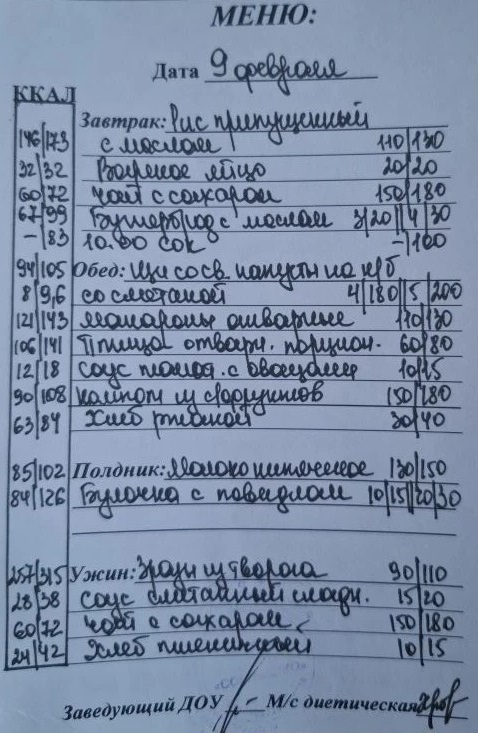 МЕНЮ:
Дата 9 февраля
ККАЛ
Завтрак: Рис припущенный
146/173 с маслом 110/130
32/32 Вареное яйцо 20/20
60/72 Чай с сахаром 150/180
67/99 Бутерброд с маслом 3/20//4/30
-/83 10.00 сок -/100
94/105 Обед: Щи со св. капусты на к/б
8/9,6 со сметаной 4/180//5/200
121/143 Макароны отварные 110/130
106/141 Птица отварн. порцион. 60/80
12/18 Соус томат. с овощами 10/15
90/108 Компот из с/фруктов 150/180
63/84 Хлеб ржаной 30/40
85/102 Полдник: Молоко кипяченое 130/150
84/126 Булочка с повидлом 10/15//20/30
257/315 Ужин: Зразы из творога 90/110
28/38 Соус сметанный сладк. 15/20
60/72 Чай с сахаром 150/180
24/42 Хлеб пшеничный 10/15
Заведующий ДОУ М/с диетическая